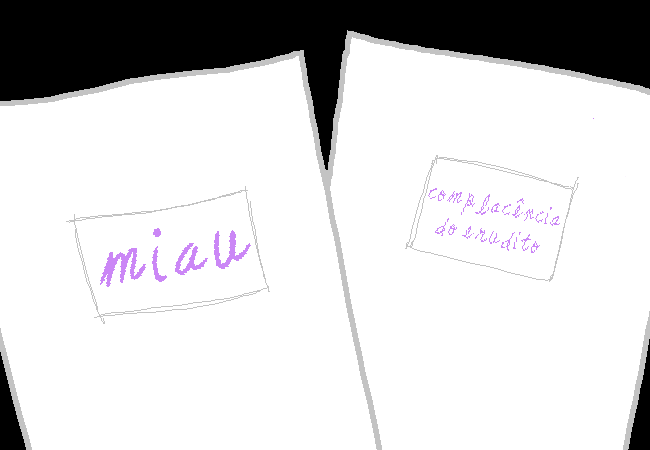 miau
complacência
do erudito